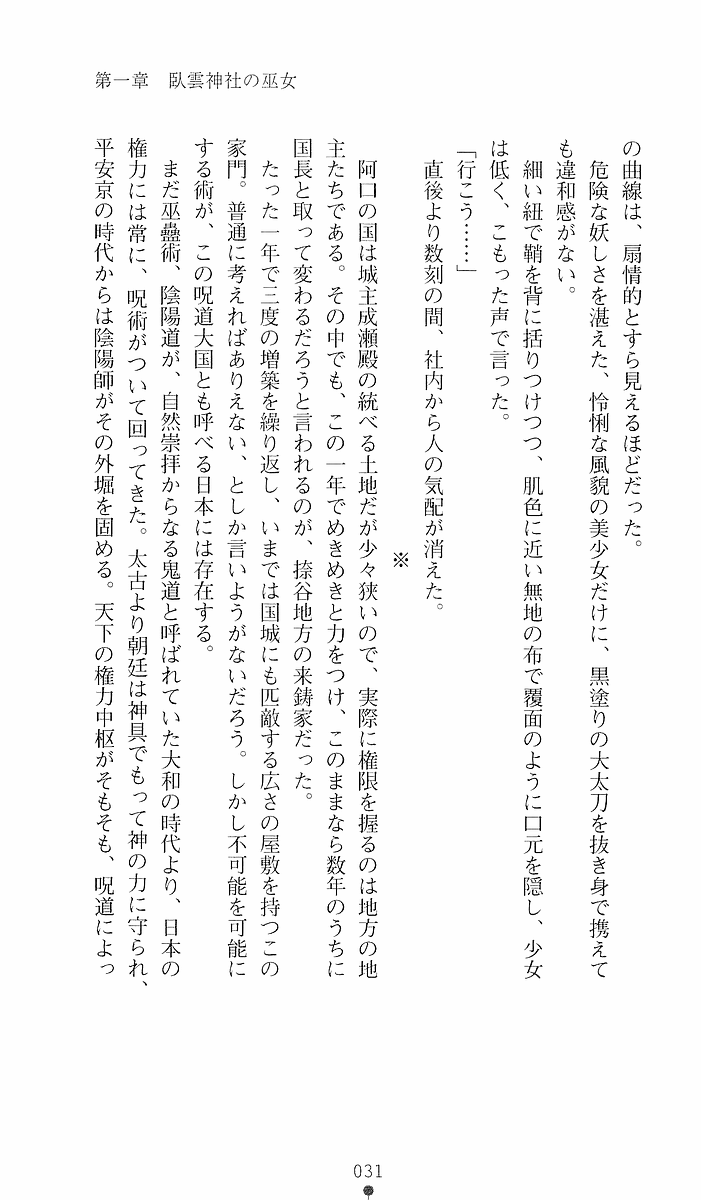 第一章　臥雲神社の巫女
の曲線は、扇情的とすら見えるほどだった。
　危険な妖しさを湛えた、怜悧な風貌の美少女だけに、黒塗りの大太刀を抜き身で携えて
も違和感がない。
　細い紐で鞘を背に括りつけつつ、肌色に近い無地の布で覆面のように口元を隠し、少女
は低く、こもった声で言った。
「行こう……」
　直後より数刻の間、社内から人の気配が消えた。
※
　阿口の国は城主成瀬殿の統べる土地だが少々狭いので、実際に権限を握るのは地方の地
主たちである。その中でも、この一年でめきめきと力をつけ、このままなら数年のうちに
国長と取って変わるだろうと言われるのが、捺谷地方の来鋳家だった。
　たった一年で三度の増築を繰り返し、いまでは国城にも匹敵する広さの屋敷を持つこの
家門。普通に考えればありえない、としか言いようがないだろう。しかし不可能を可能に
する術が、この呪道大国とも呼べる日本には存在する。
　まだ巫蠱術、陰陽道が、自然崇拝からなる鬼道と呼ばれていた大和の時代より、日本の
権力には常に、呪術がついて回ってきた。太古より朝廷は神具でもって神の力に守られ、
平安京の時代からは陰陽師がその外堀を固める。天下の権力中枢がそもそも、呪道によっ
031